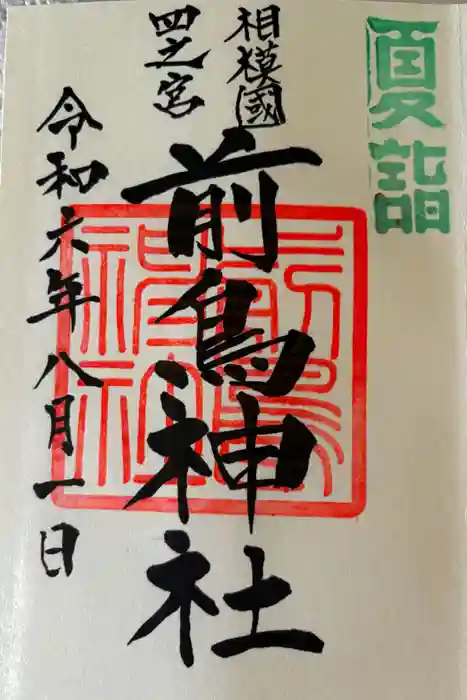 夏詣
相模國
四之宮
前鳥神社
令和六年八月一日